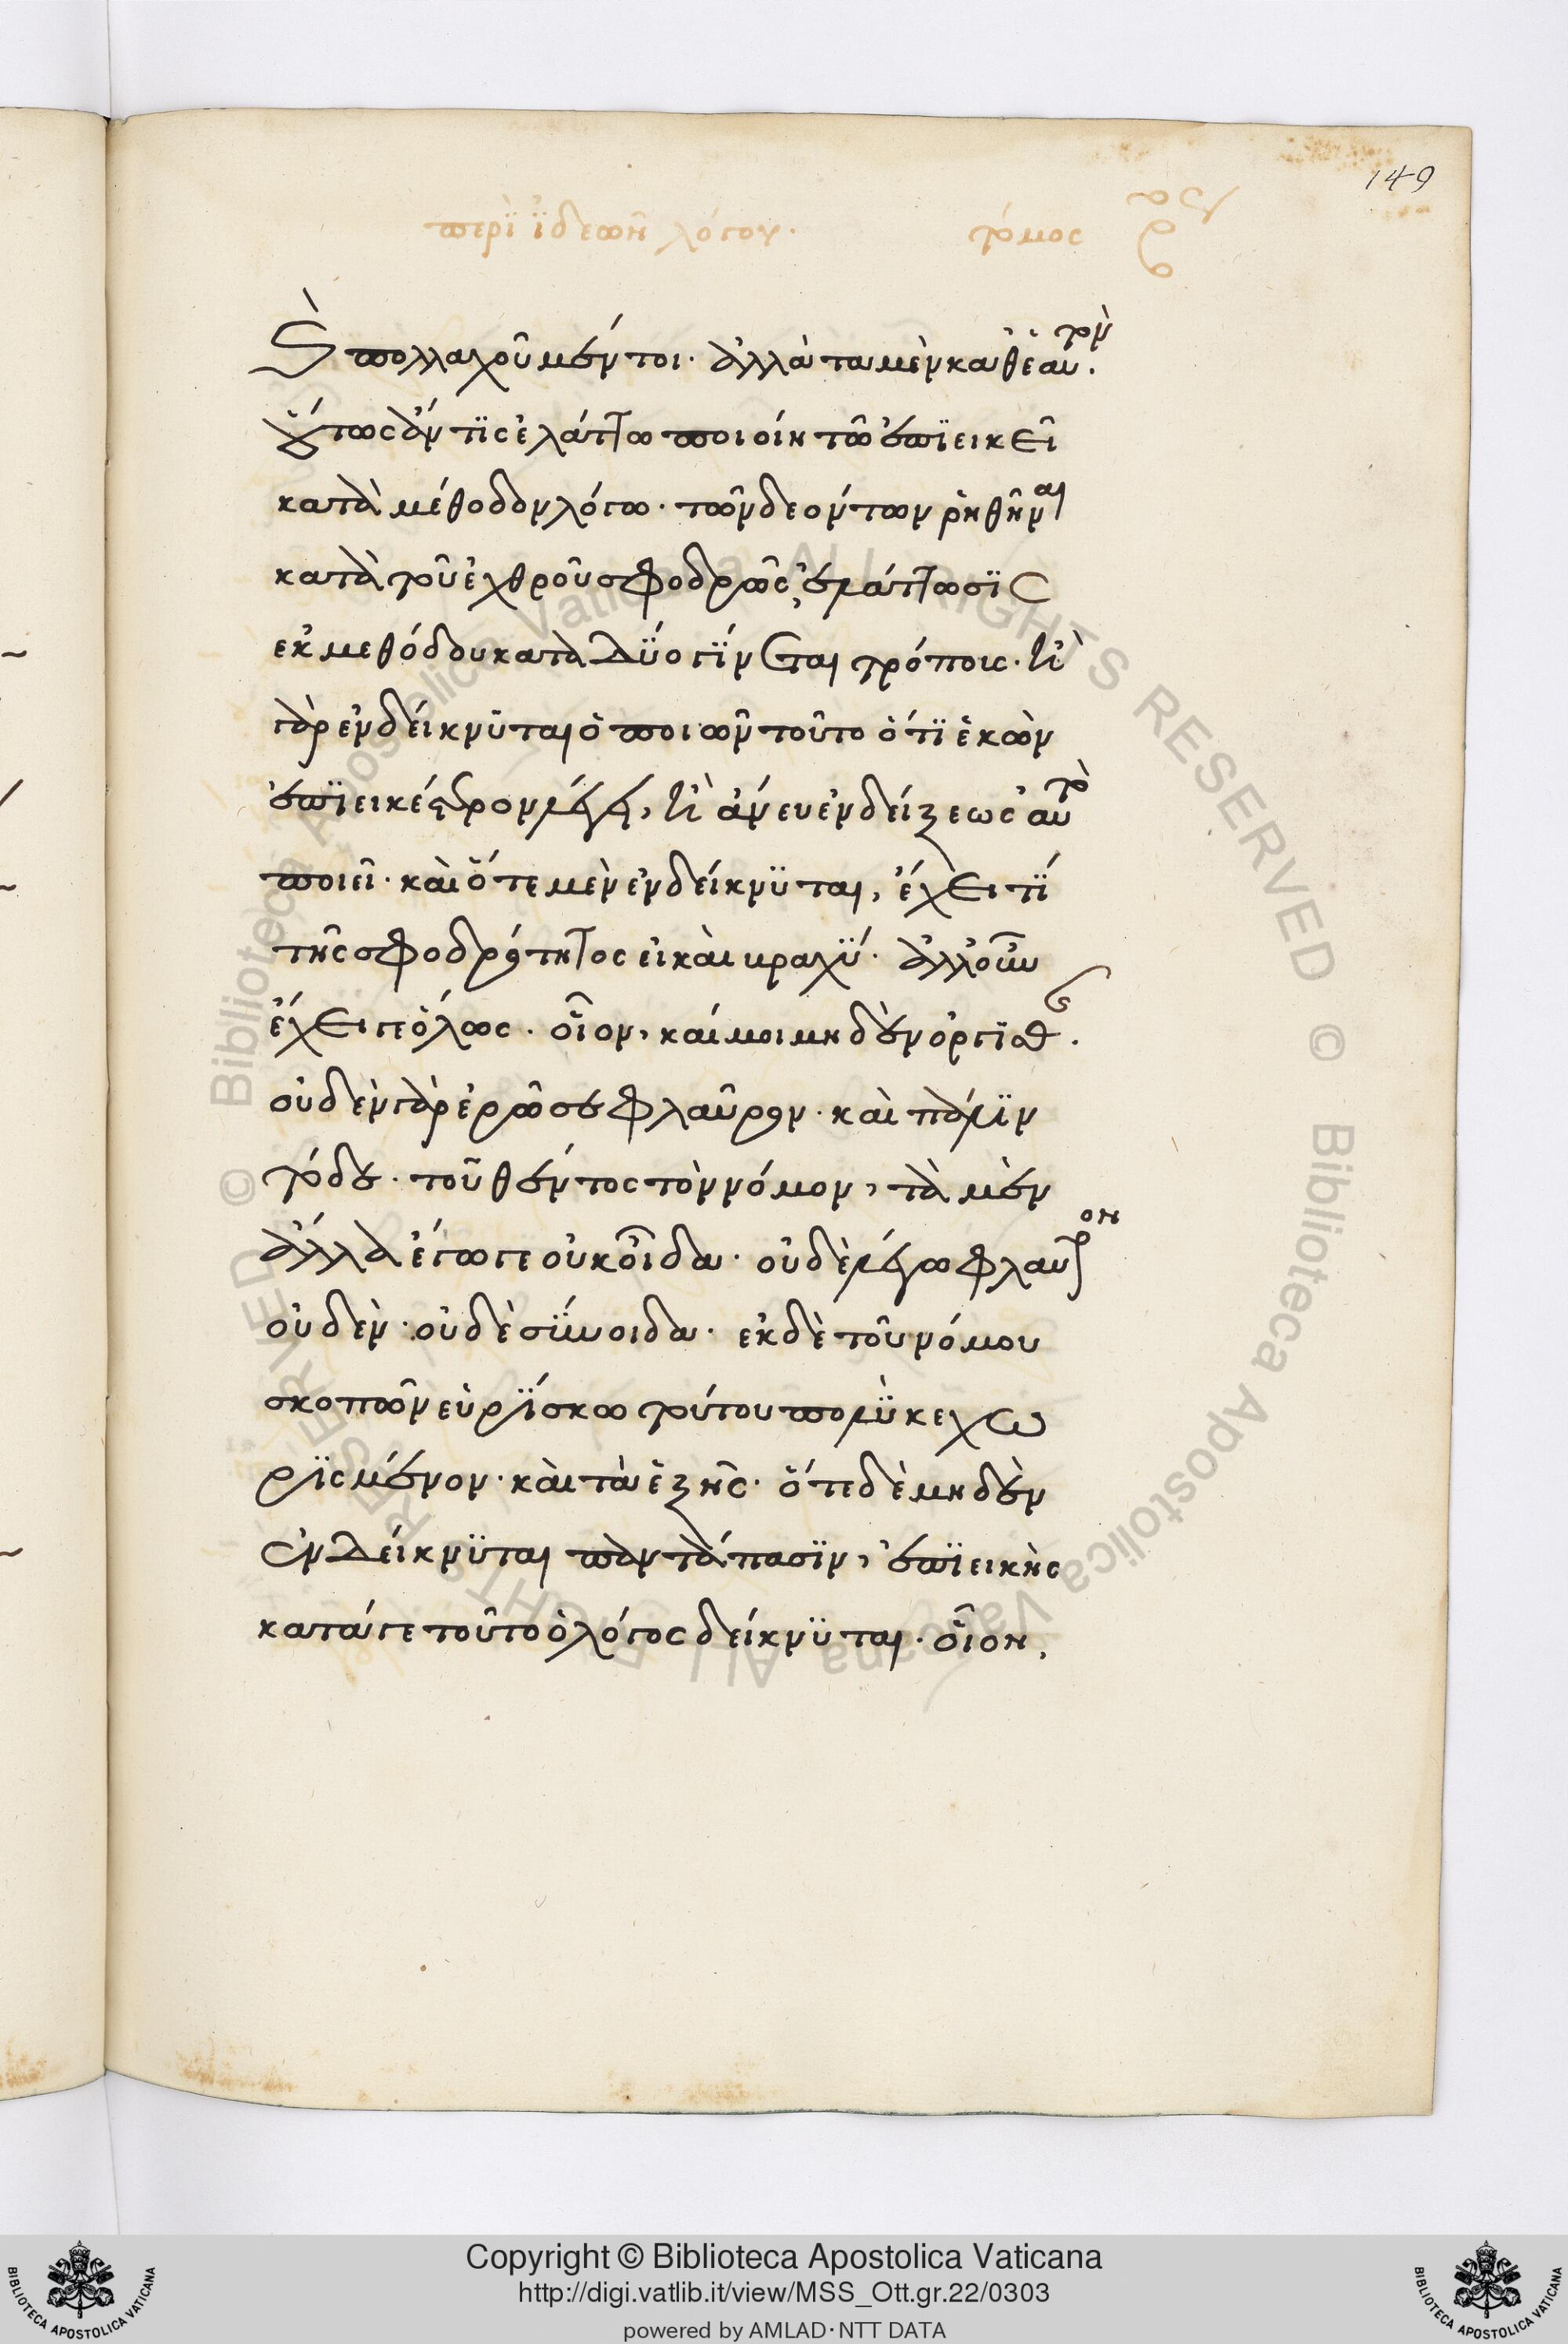 149
περὶ ἰδεῶν λόγου. τόμος
καὶ πολλαχοῦ μέντοι. ἀλλὰ τὰ μὲν καθ' ἑαυτὸν.
οὕτως ἄν τις ἐλάττω ποιοίη τῷ ἐπιεικεῖ
κατὰ μέθοδον λόγω. τῶν δεόντων ῥηθῆναι
κατὰ τοῦ ἐχθροῦ σφοδρῶς, ἐλάττωσις
ἐκ μεθόδου κατὰ δύο γίνεται τρόπους. ἢ
γὰρ ἐνδείκνυται ὁ ποιῶν τοῦτο ὅτι ἑκὼν
ἐπιεικέστερον λέγει, ἢ ἄνευ ἐνδείξεως αὐτὸ
ποιεῖ. καὶ ὅτε μὲν ἐνδείκνυται, ἔχει τί
τῆς σφοδρότητος εἰ καὶ βραχύ. ἀλλ' οὖν
ἔχει γε ὅλως. οἷον, καί μοι μηδὲν ὀργισθῇς.
οὐδὲν γὰρ ἐρῶ σε φλαῦρον. καὶ πάλιν
τόδε. τοῦ θέντος τὸν νόμον, τὰ μὲν
ἄλλα ἔγωγε οὐκ οἶδα. οὐδὲ λέγω φλαῦρον
οὐδὲν. οὐδὲ σύνοιδα. ἐκ δὲ τοῦ νόμου
σκοπῶν εὑρίσκω τούτου πολὺ κεχω
ρισμένον. καὶ τὰ ἑξῆς. ὅτε δὲ μηδὲν
ἐνδείκνυται παντάπασιν, ἐπιεικὴς
κατά γε τοῦτο ὁ λόγος δείκνυται. οἷον,
Copyright © Biblioteca Apostolica Vaticana
http://digi.vatlib.it/view/MSS_Ott.gr.22/0303
powered by AMLAD·NTT DATA
BIBLIOTECA APOSTOLICA VATICANA
BIBLIOTECA APOSTOLICA VATICANA
© Biblioteca Apostolica Vaticana ALL RIGHTS RESERVED © Biblioteca Apostolica Vaticana ALL RIGHTS RESERVED